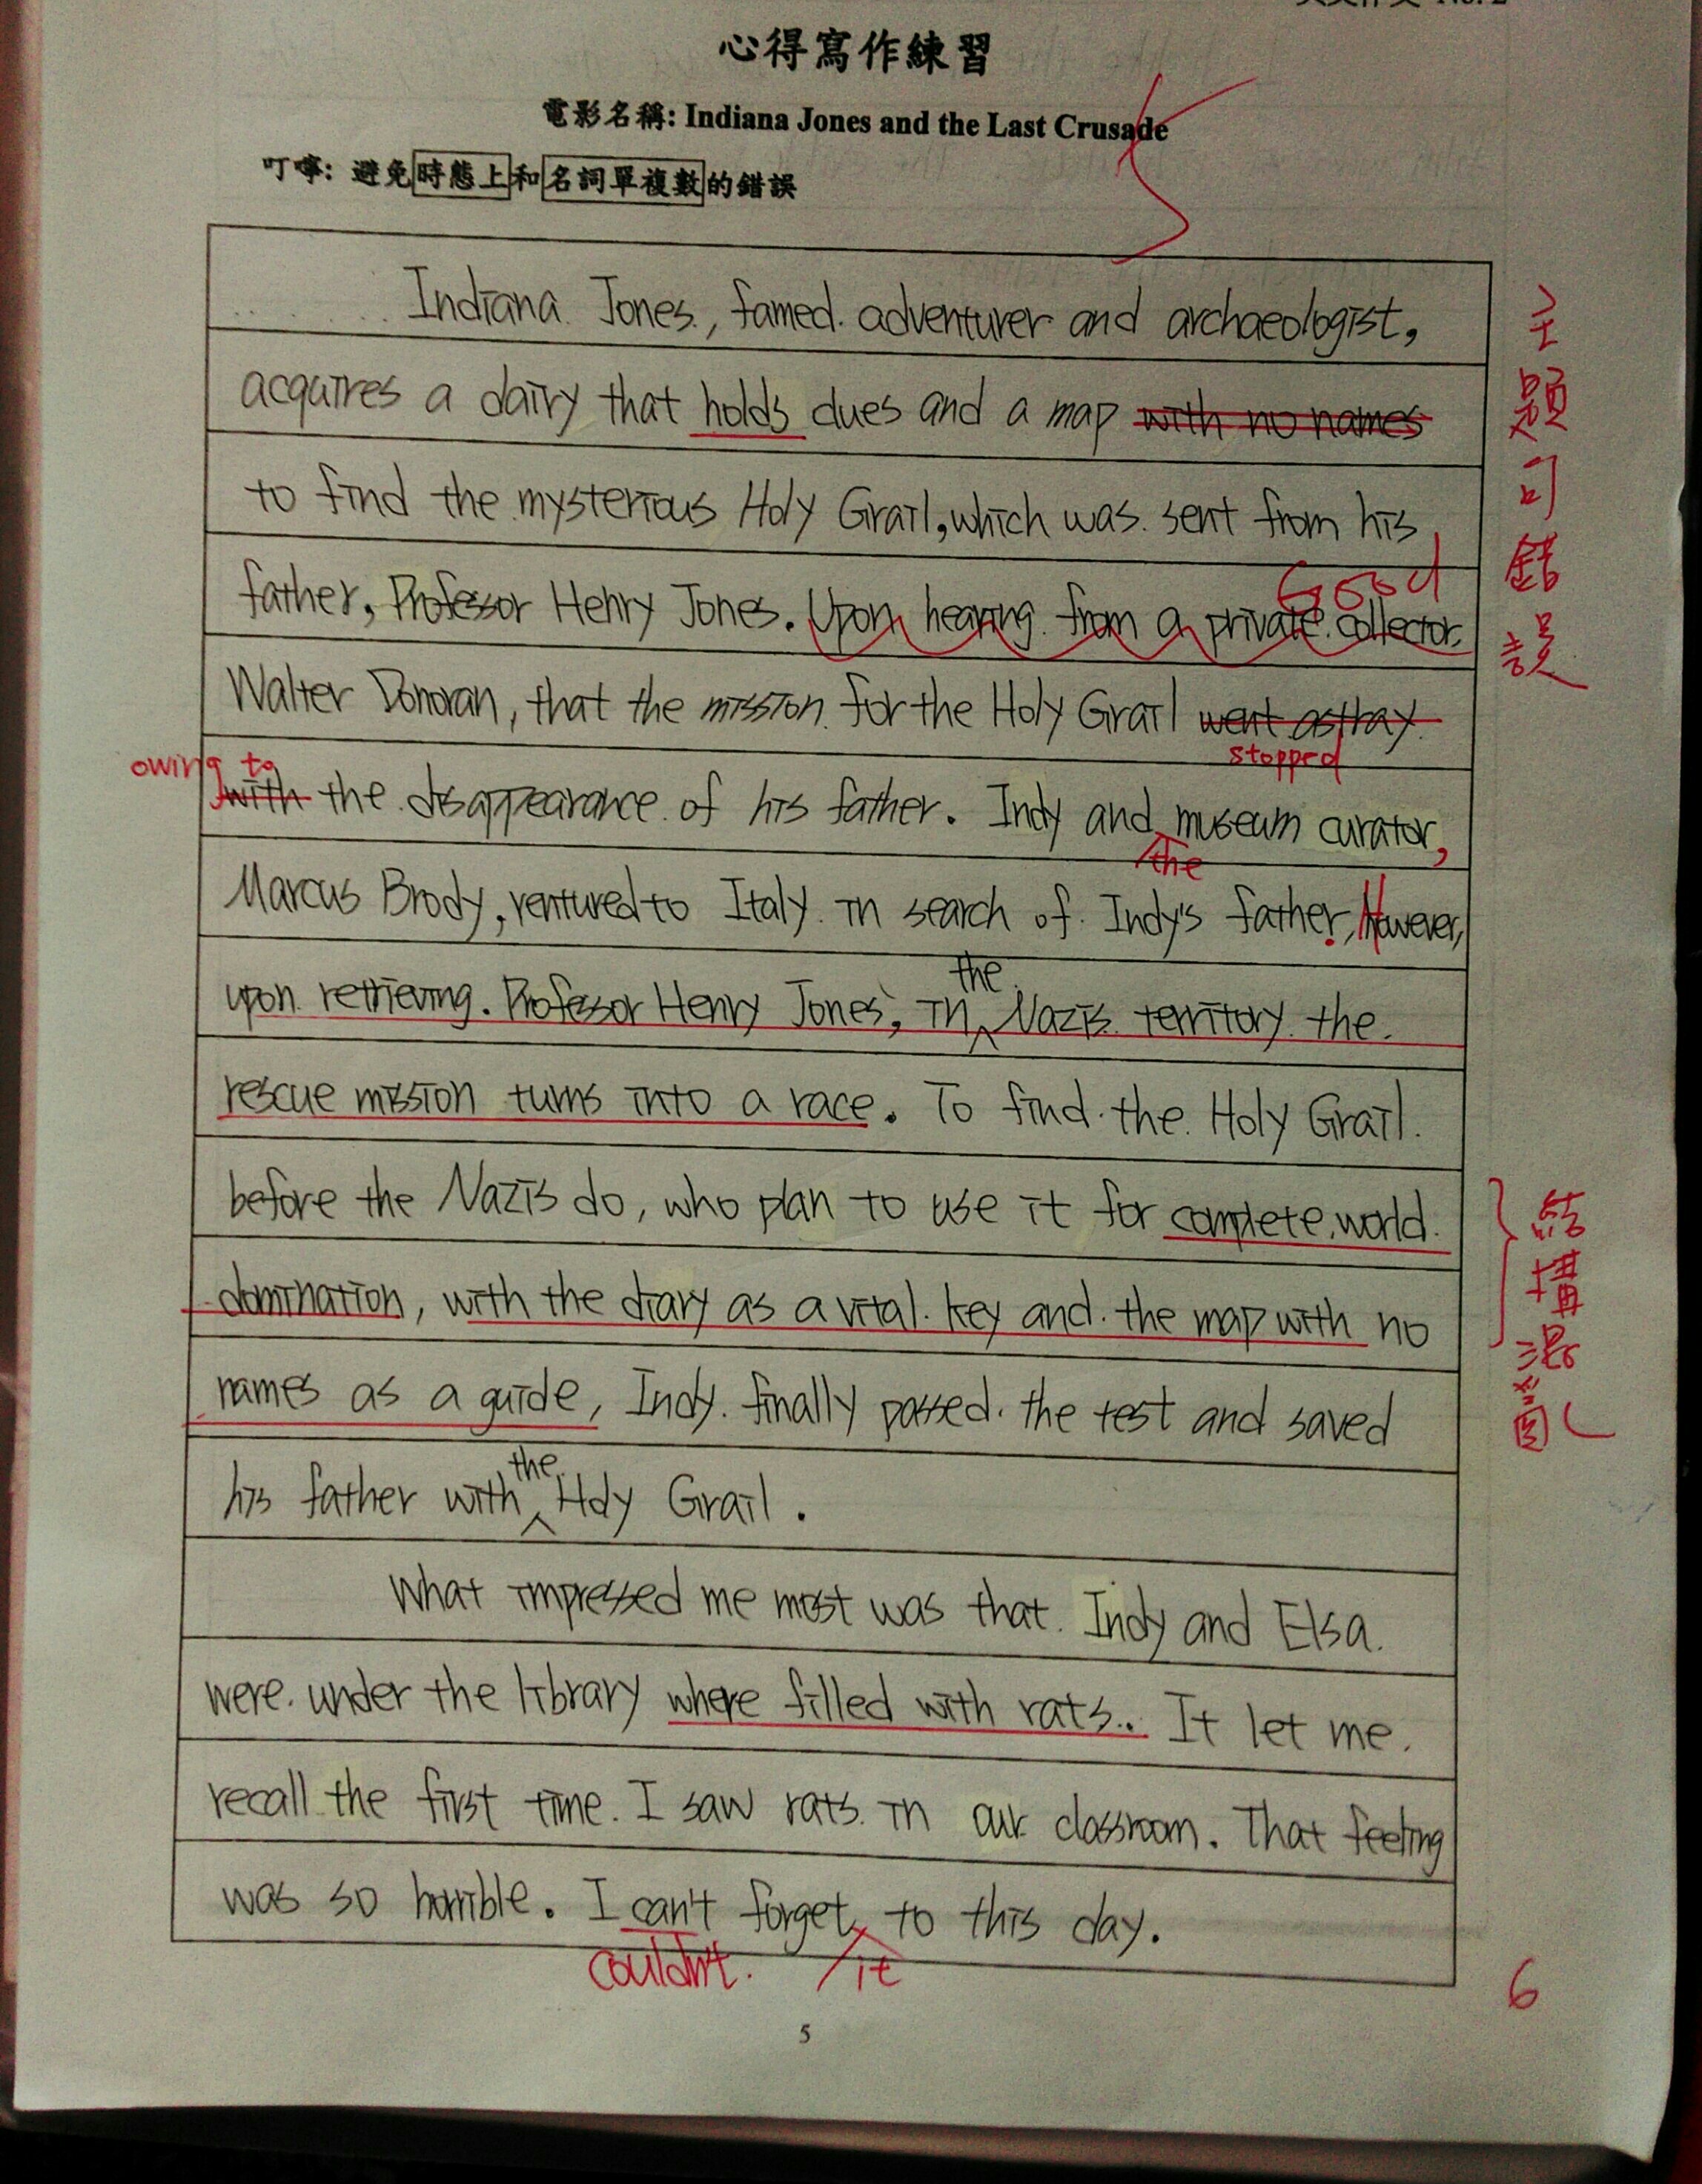 心得寫作練習
電影名稱: Indiana Jones and the Last Crusade
叮嚀: 避免時態上和名詞單複數的錯誤
Indiana Jones, famed adventurer and archaeologist,
acquires a dairy that holds clues and a map with no names
to find the mysterious Holy Grail, which was sent from his
Good
father, Professor Henry Jones. Upon hearing from a private collector,
Walter Donovan, that the mission for the Holy Grail went astray
stopped
owing to
with the disappearance of his father. Indy and museum curator,
the
Marcus Brody, ventured to Italy in search of Indy's father, However,
the
upon retrieving Professor Henry Jones, in Nazis territory the
rescue mission turns into a race. To find the Holy Grail
before the Nazis do, who plan to use it for complete world
domination, with the diary as a vital key and the map with no
names as a guide, Indy finally passed the test and saved
the
his father with Holy Grail.
What impressed me most was that Indy and Elsa
were under the library where filled with rats.. It let me
recall the first time I saw rats in our classroom. That feeling
was so horrible. I can't forget to this day.
couldn't it
主題句錯誤
結構混亂
6
5